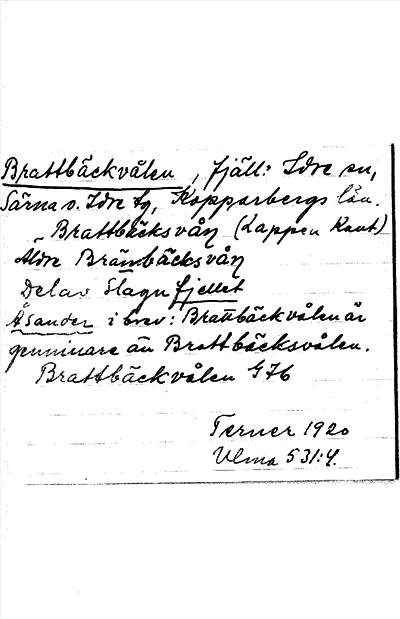 Brattbäckvålen, fjäll: Idre sn,
Särna o. Idre tg, Kopparbergs län.
Brattbäcksvåɳ (Lappen Knut)
Äldre Brämbäcksvåɳ
Del av Slagufjellet
Åsander i brev: Brattbäckvålen är
genuinare än Brattbäcksvålen.
Brattbäckvålen G76
Terner 1920
Ulma 531:4.